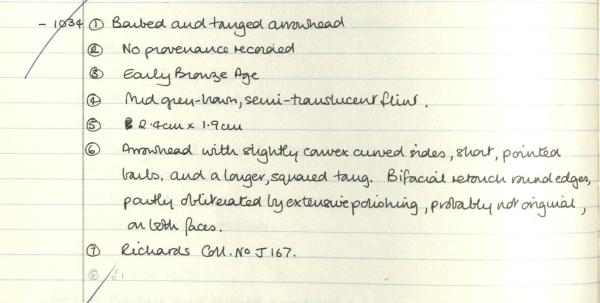 - 1034 ① Barbed and tanged arrowhead
② No provenance recorded
③ Early Bronze Age
④ Mid grey-brown, semi-translucent flint.
⑤ 2.4cm x 1.9cm
⑥ Arrowhead with slightly convex curved sides, short, pointed
barbs, and a longer, squared tang. Bifacial retouch round edges,
partly obliterated by extensive polishing, probably not original,
on both faces.
⑦ Richards Coll. No J 167.
⑧